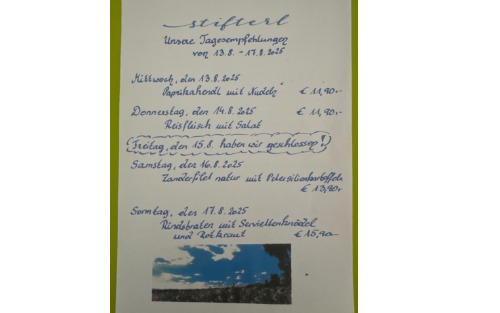 stifterl
Unsere Tagesempfehlungen
von 13.8. - 17.8.2025
Mittwoch, den 13.8.2025
Paprikahendl mit Nudeln € 11,90.-
Donnerstag, den 14.8.2025 € 11,90.-
Reisfleisch mit Salat
Freitag, den 15.8. haben wir geschlossen!
Samstag, den 16.8.2025
Zanderfilet natur mit Petersilienkartoffeln
€ 13,90.-
Sonntag, den 17.8.2025
Rindsbraten mit Serviettenknödel
und Rotkraut € 15,90.-